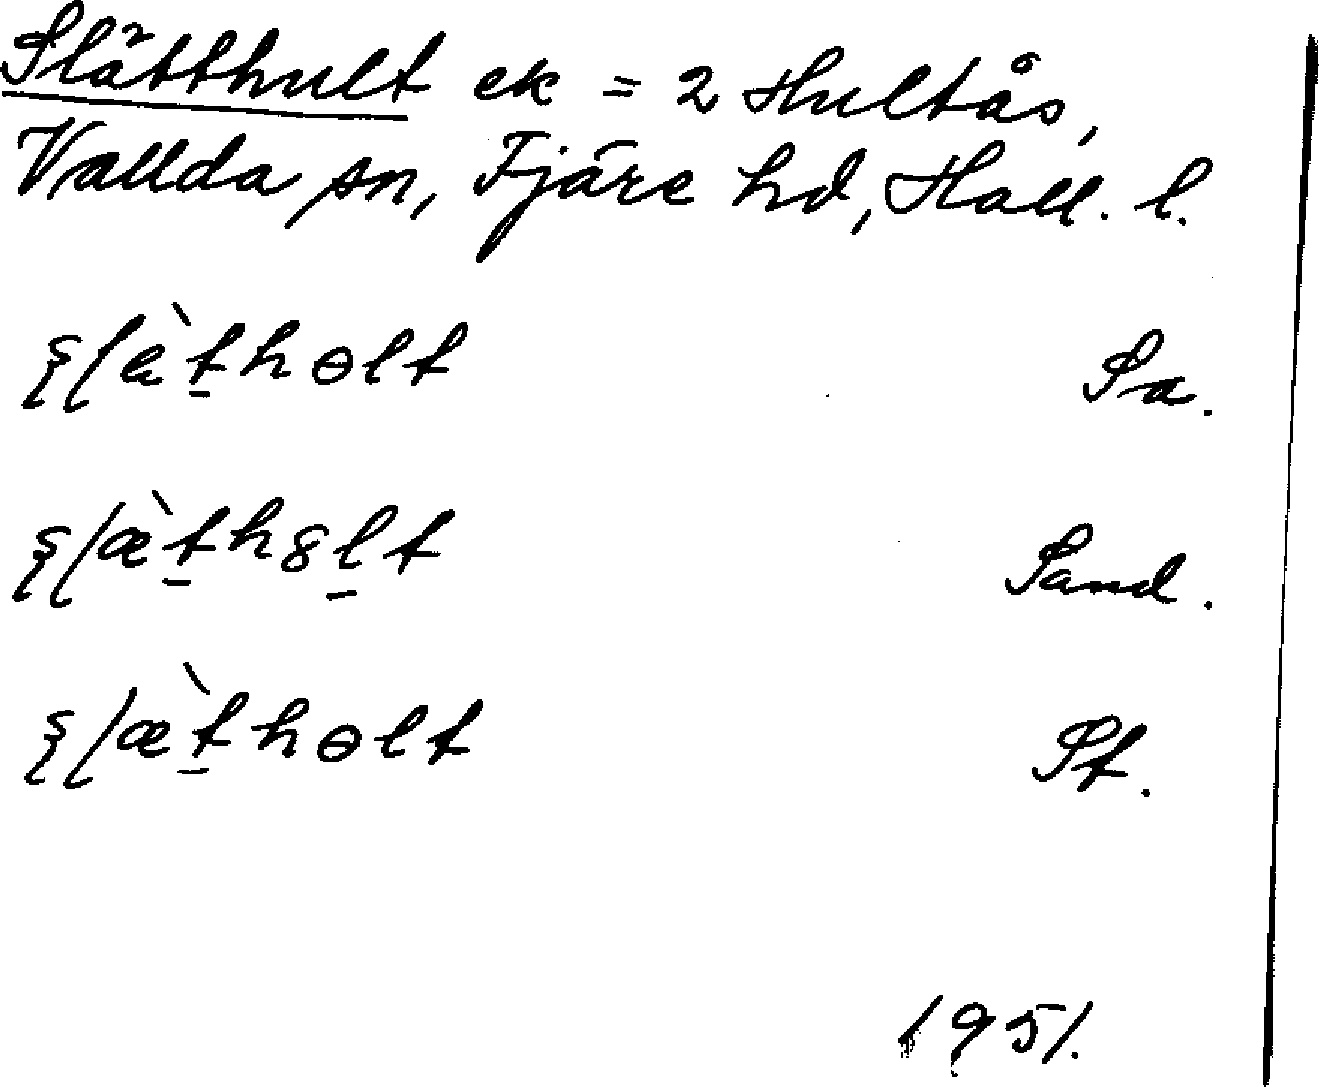 Slätthult ek = 2 Hultås,
Vallda sn, Fjäre hd, Hall. l.
ʂɭàt̠hɵlt Sa.
ʂɭæ̀t̠h8l̠t Sand.
ʂɭæ̀t̠hɵlt Pf.
1951.